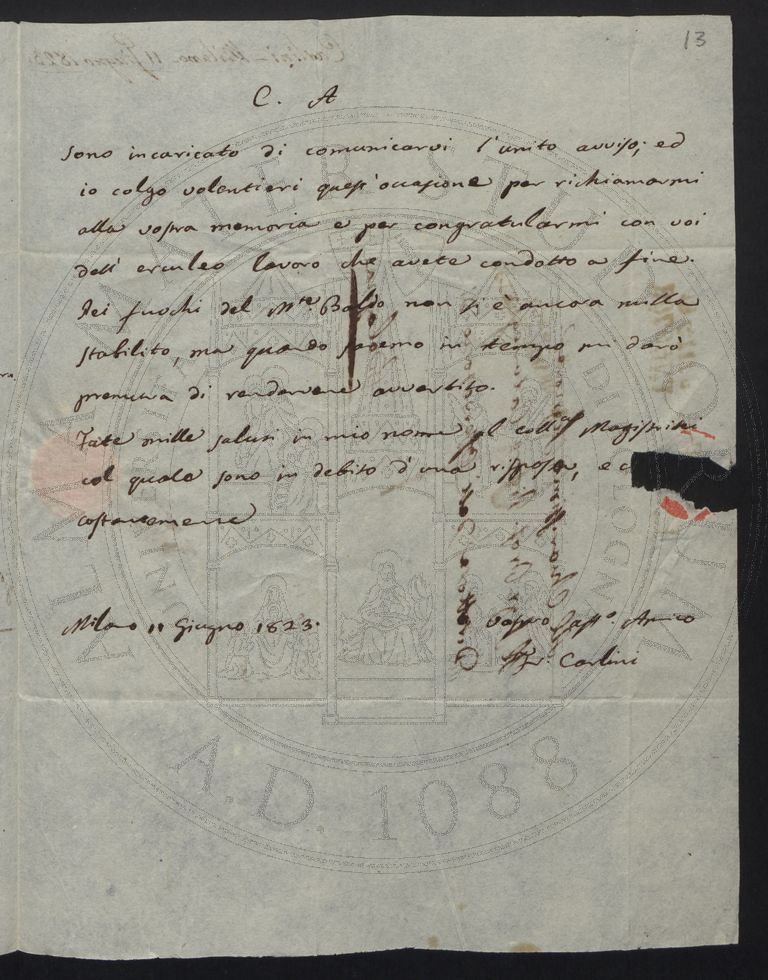 13
C. A
Sono incaricato di comunicarvi l'unito avviso; ed
io colgo volentieri quest'occasione per richiamarmi
alla vostra memoria e per congratularmi con voi
dell' erculeo lavoro che avete condotto a fine.
Dei fuochi del M.te Baldo non si è ancora nulla
stabilito, ma quando saremo in tempo mi darò
premura di rendervene avvertito.
Fate mille saluti in mio nome al coll.a Magistrini
col quale sono in debito d'una risposta, e
costantemente
Milano 11 Giugno 1823.
Vostro Aff.o Amico
Fr. Carlini
ALMA MATER STUDIORUM
A.D. 1088